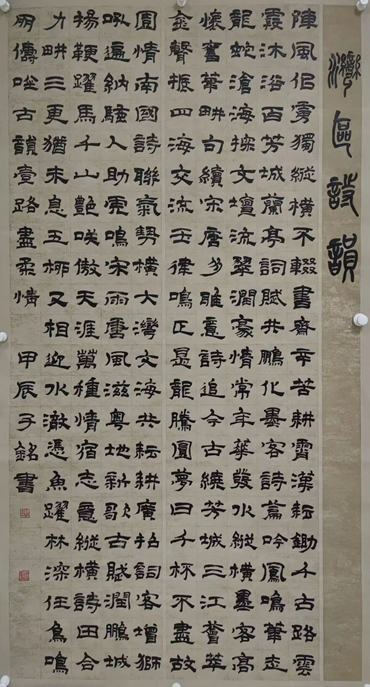 灣區詩韻
陳風侶雲獨縱橫不輟書齋辛苦耕霄漢耘鋤千古路雲
霞沐浴百芳城蘭亭詞賦共鵬化墨客詩篇吟鳳鳴筆走
龍蛇滄海探文壇流翠潤豪情常年華發水縱橫墨客高
懷奮筆耕句續宋唐多雅意詩追今古繞芳城三江薈萃
金聲振四海交流玉律鳴正是龍騰圓夢日千杯不盡故
園情南國詩聯氣勢橫大灣文海共耘耕廣招詞客增獅
吼遍納騷人助虎鳴宋雨唐風滋粵地新歌古賦潤鵬城
揚鞭躍馬千山艷笑傲天涯萬種情宿志意縱橫詩田合
力耕三更猶未息五柳又相迎水澈憑魚躍林深任鳥鳴
朋儔古韻壹路盡柔情 甲辰子銘書